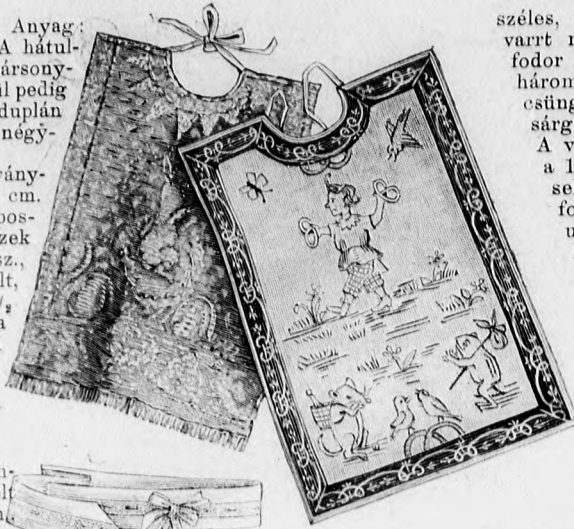 Anyag:
A hátul-
ársony-
il pedig
duplán
négy-
vány-
cm.
pos-
zek
sz.,
lt,
/₂
a
n-
lt
n,
széles,
varrt n
fodor
három
csüng
sárg
A v
a 1
se
fo
u